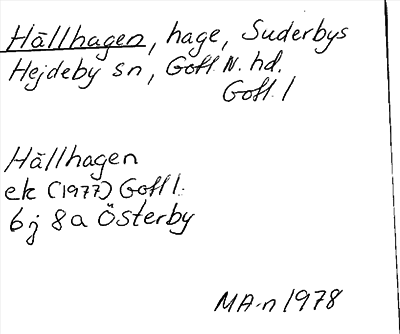 Hällhagen, hage, Suderbys
Hejdeby sn, Gotl N. hd.
Gotl. l
Hällhagen
ek (1977) Gotl l.
6j 8a Österby
MA-n 1978